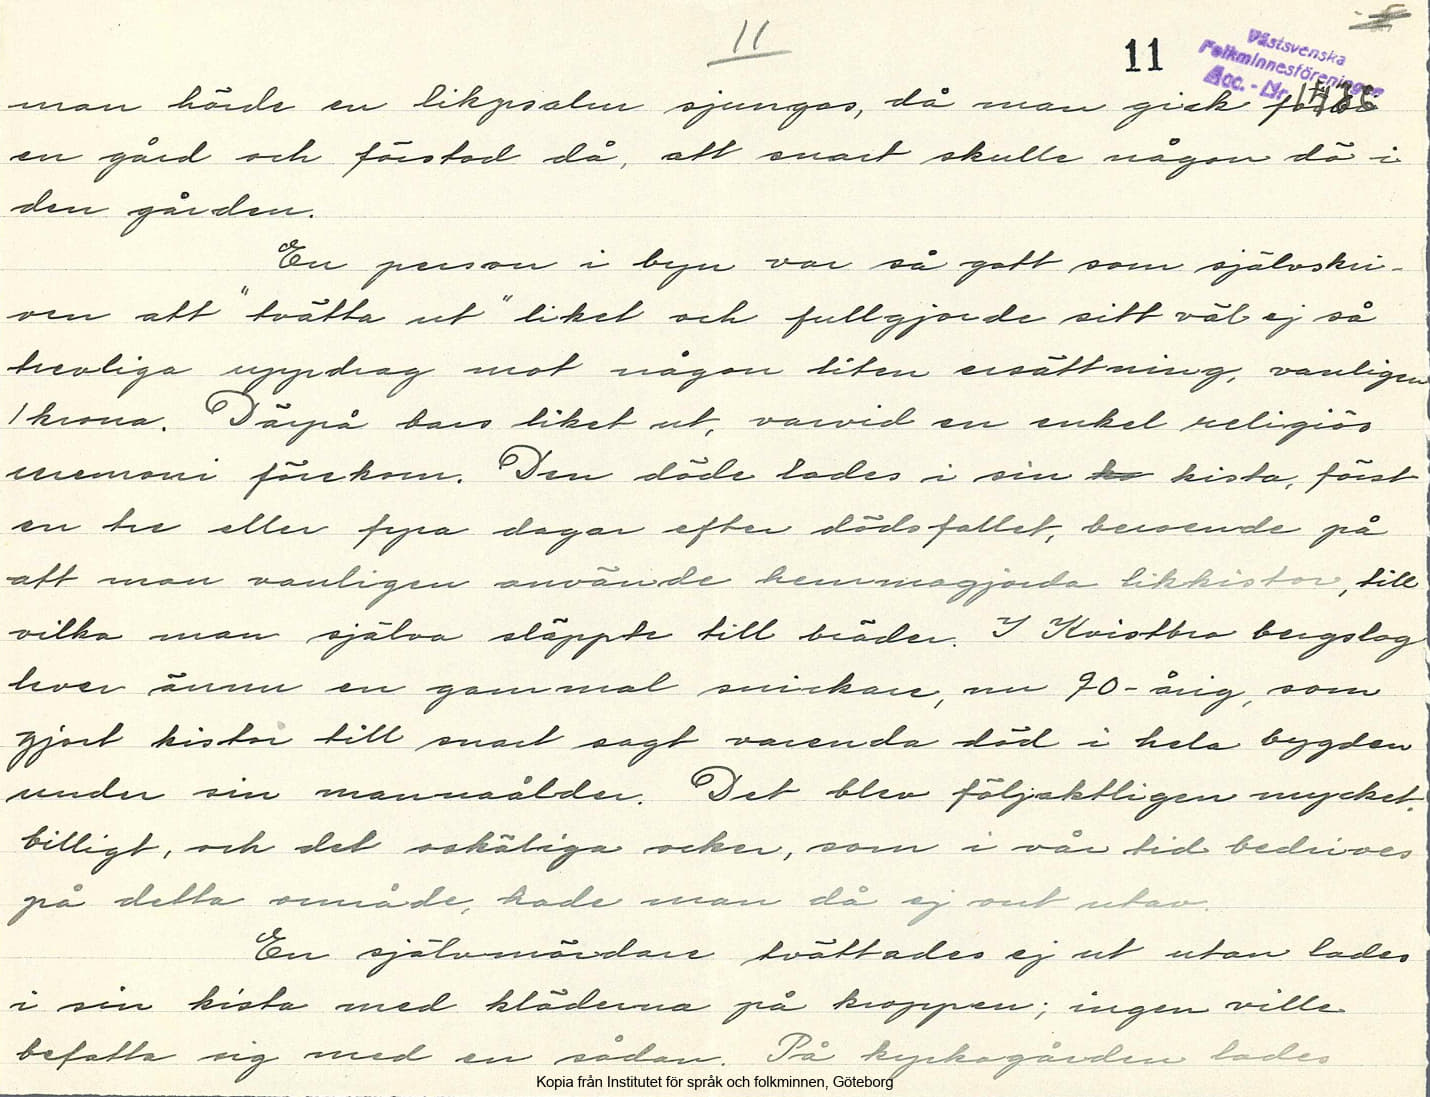 11
11
Västsvenska
Folkminnesföreningen
Acc. - Nr
man hörde en likpsalm sjungas, då man gick förbi
en gård och förstod då, att snart skulle någon dö i
den gården.
En person i byn var så gott som självskri-
ven att "tvätta ut" liket och fullgjorde sitt väl ej så
trevliga uppdrag mot någon liten ersättning, vanligen
1 krona. Därpå bars liket ut, varvid en enkel religiös
ceremoni förekom. Den döde lades i sin ko kista, först
en tre eller fyra dagar efter dödsfallet, beroende på
att man vanligen använde hemmagjorda likkistor, till
vilka man själva släppte till bräder. I Kvistbro bergslag
lever ännu en gammal snickare, nu 90-årig, som
gjort kistor till snart sagt varenda död i hela bygden
under sin mannaålder. Det blev följaktligen mycket
billigt, och det oskäliga ocker, som i vår tid bedrives
på detta område, hade man då ej ont utav.
En självmördare tvättades ej ut utan lades
i sin kista med kläderna på kroppen; ingen ville
befatta sig med en sådan. På kyrkogården lades
Kopia från Institutet för språk och folkminnen, Göteborg